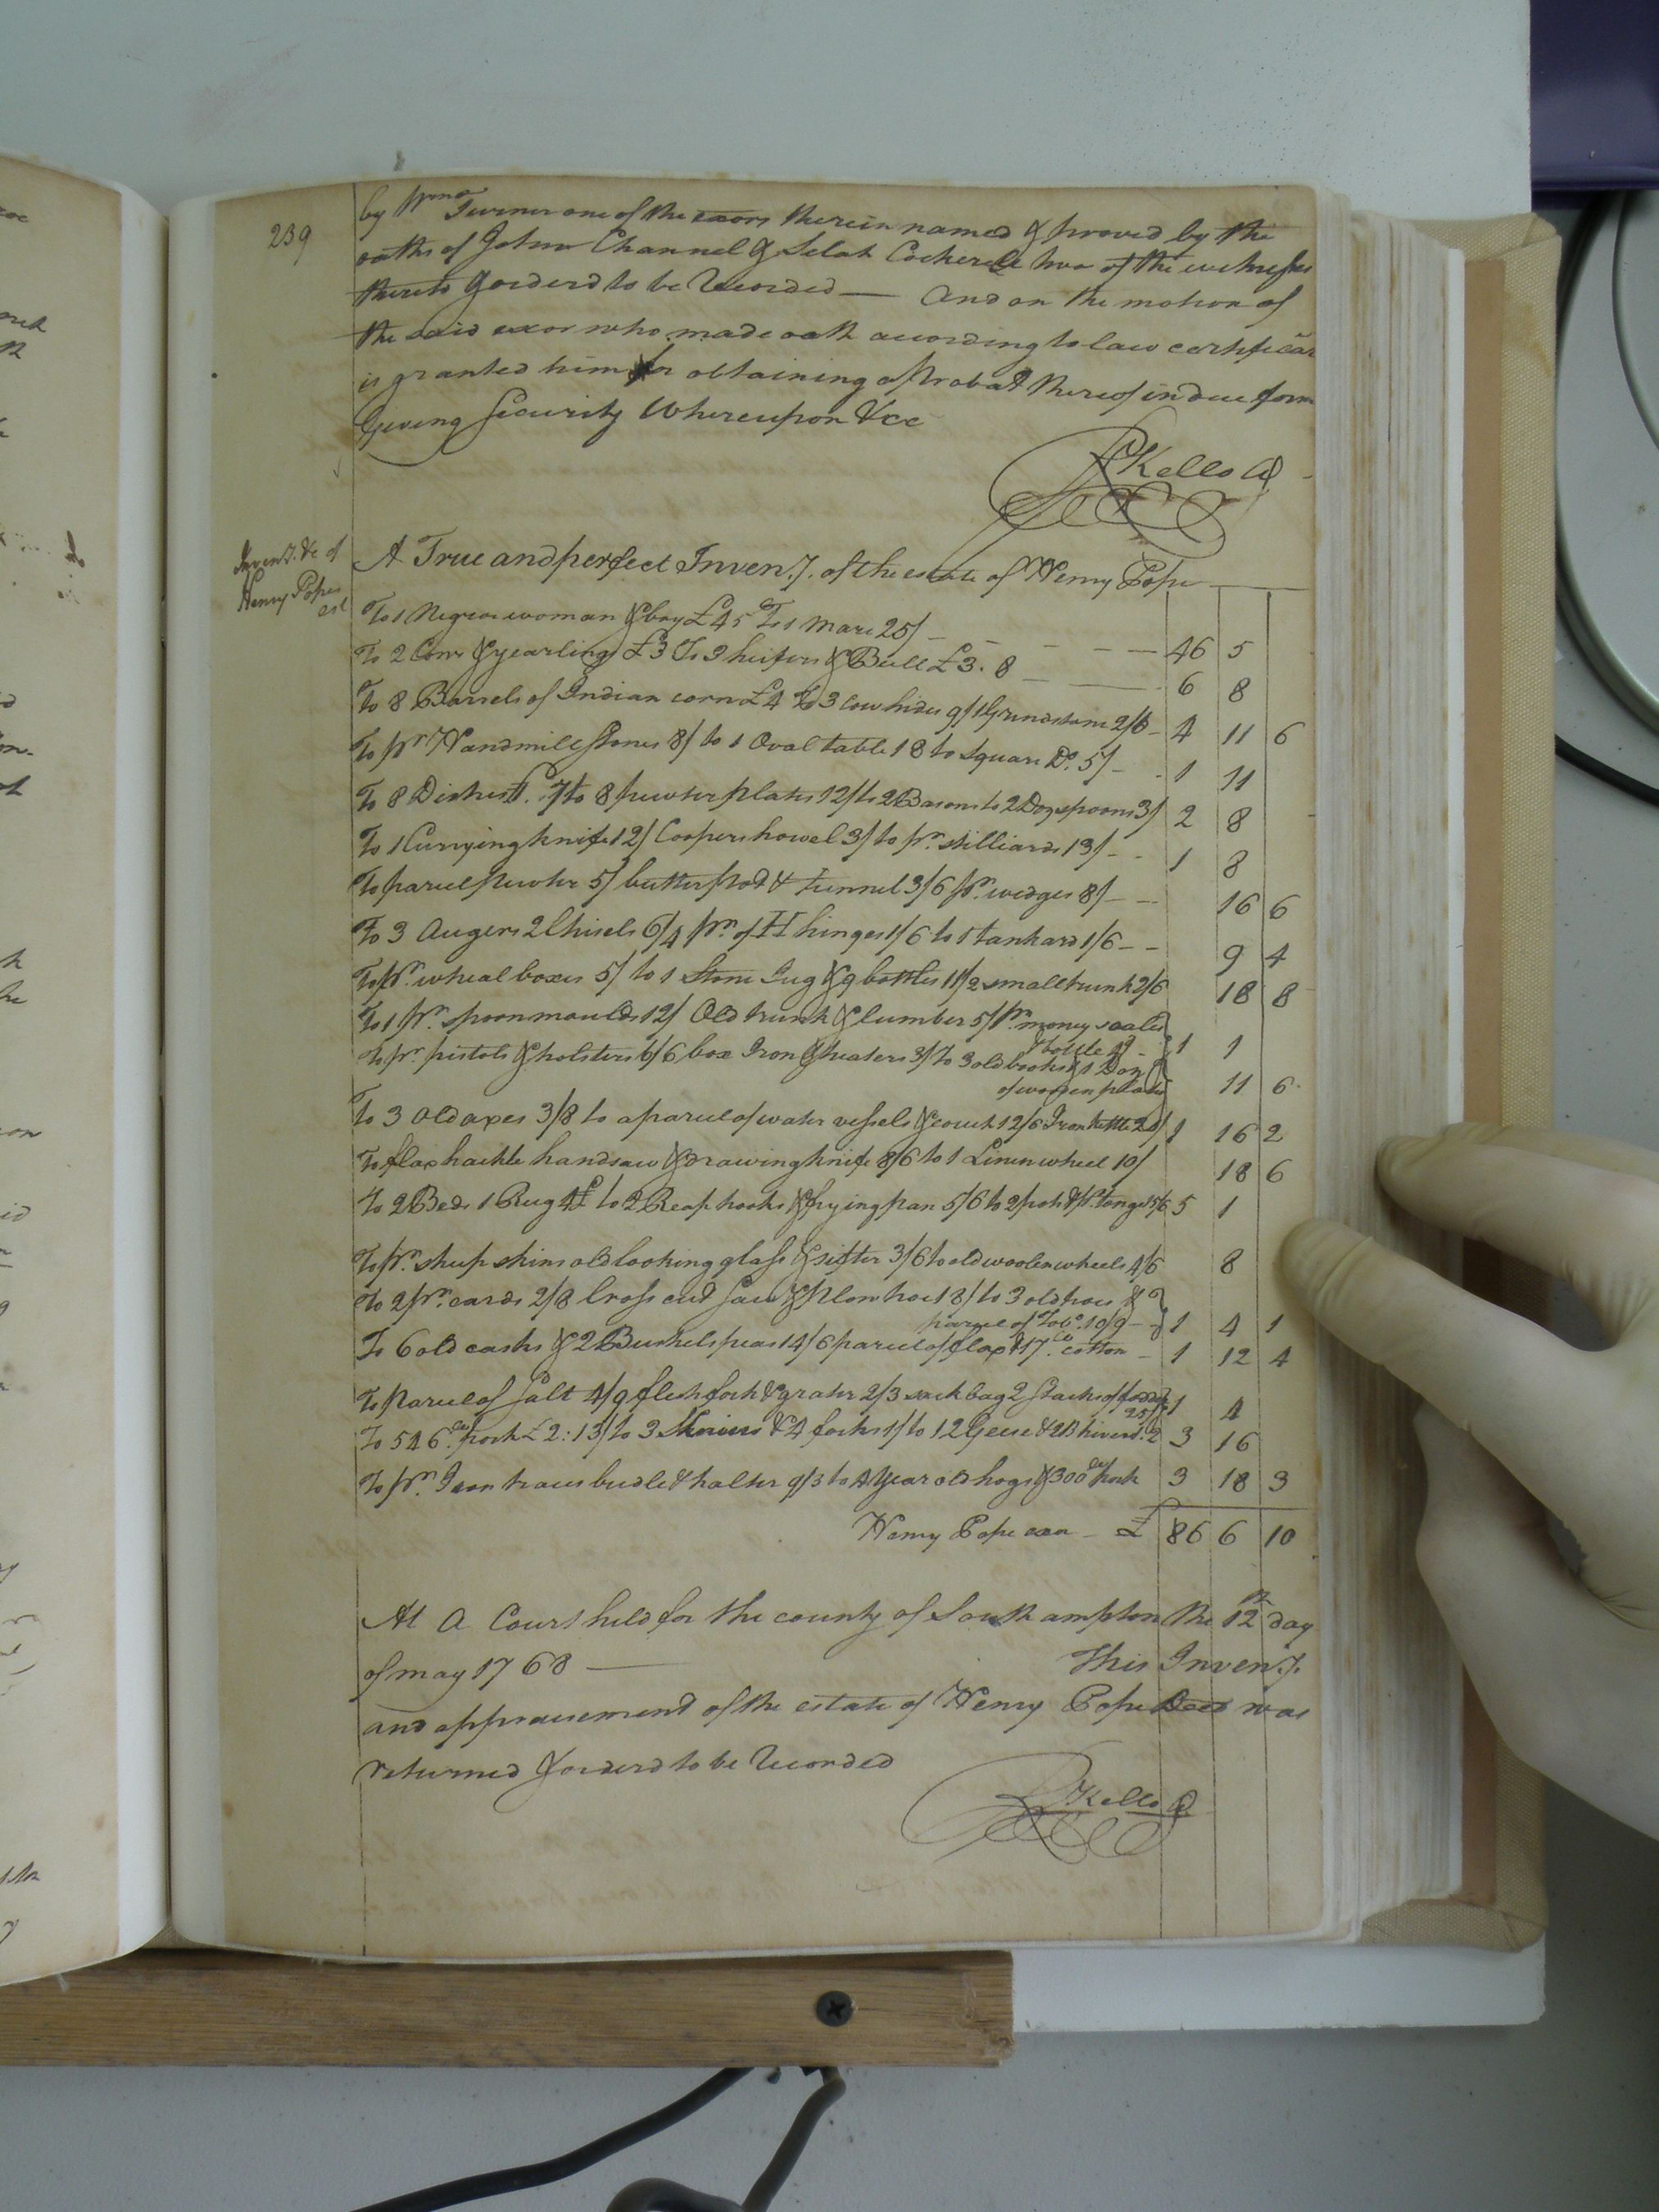 239
by Wm Turner one of the exors therein named & proved by the
oaths of John Channel & Selah Cockerele two of the witnesses
thereto & orderd to be Recorded — And on the motion of
the said exor who made oath according to law certificat
is granted him for obtaining a Probat thereof in due form
Giving Security Whereupon &cc
RKello Cl
Inven.y. &c of
Henry Popes
est
A True and perfect Inven.y. of the estate of Henry Pope
To 1 Negroe woman & boy £45 To 1 Mare 25/ 46 5
To 2 Cows & yearling £3 To 3 heifers & Bull £3. 8 6 8
To 8 Barrels of Indian corn £4 to 3 Cow hides 9/ 1 Grindstone 2/6 4 11 6
To pr Handmill Stones 8/ to 1 Oval table 18 to square Do. 5/ 1 11
To 8 Dishes to 8 pewter plates 12/ to 2 Basons to 2 Doz spoons 3/ 2 8
To 1 Currying knife 12/ Coopers howel 3/ to pr. stilliards 13/ 1 8
To parcel pewter 5/ butter pot & tunnel 3/6 pr. wedges 8/ 16 6
To 3 Augers 2 Chisels 6/4 pr. of H hinges 1/6 to 1 tankard 1/6 9 4
To pr. wheal boxes 5/ to 1 Stone Jug & 9 bottles 11/2 small trunk 2/6 18 8
To 1 pr. spoon moulds 12/ Old trunk & lumber 5/ pr. money scales
& bottle 1 1
To pr. pistols & holsters 6/6 box Iron & heaters 3/ To 3 old books & 1 Doz
of wooden plates 11 6
To 3 Old axes 3/8 to a parcel of water vessels & couch 12/6 Iron kettle 20/ 1 16 2
To flax hackle handsaw & drawing knife 8/6 to 1 Linen wheel 10/ 18 6
To 2 Beds 1 Rug 4£ to 2 Reap hooks & frying pan 5/6 to 2 pots & pr. tongs 15/6 5 1
To pr. sheep skins old looking glass & sifter 3/6 to old woolen wheels 4/6 8
To 2 pr. cards 2/8 Cross cut Saw & Plow hoe 18/ to 3 old hoes &
parcel of Tobo. 10/9 1 4 1
To 6 old casks & 2 Bushels peas 14/6 parcel of flax & 17 lb cotton 1 12 4
To Parcel of Salt 4/9 flesh fork & grater 2/3 sack bag 2 Stacks of fodder
25/ 1 4
To 546 lb pork £2:13/ to 3 Skeiners & 4 forks 1/ to 12 Geese & 2 B hives 3 16
To pr. Iron traces bridle & halter 9/3 to 4 Year old hogs & 300 lb pork 3 18 3
Henry Pope exor £ 86 6 10
At A Court held for the county of Southampton the 12th day
of may 1768 — This Inven.y.
and appraisement of the estate of Henry Pope Decd was
returned & orderd to be Recorded
RKello Cl